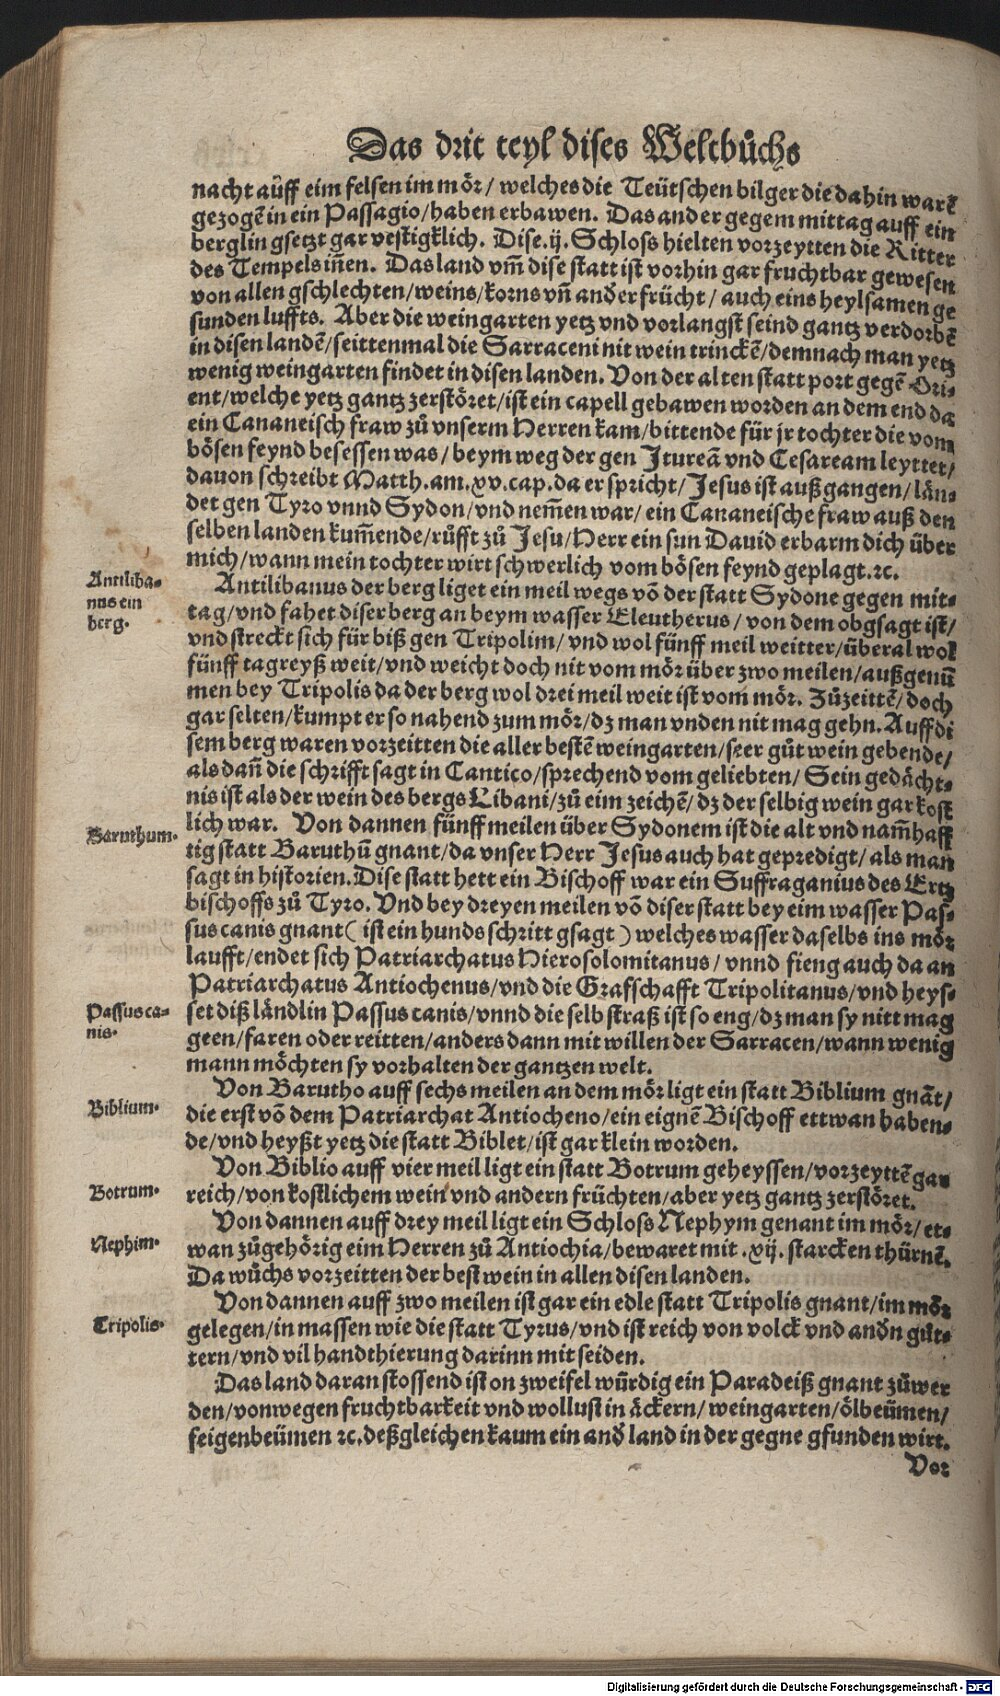 Das drit teyl dises Weltbůchs
nacht auff eim felsen im moͤr/ welches die Teütschen bilger die dahin warẽ
gezogẽ in ein Passagio/ haben erbawen. Das ander gegem mittag auff ein
berglin gsetzt gar vestigklich. Dise .ij. Schloss hielten vorzeytten die Ritter
des Tempels iñen. Das land vm̃ dise statt ist vorhin gar fruchtbar gewesen
von allen gschlechten/ weins/ korns vñ anďer frücht/ auch eins heylsamen ge
sunden luffts. Aber die weingarten yetz vnd vorlangst seind gantz verdorbẽ
in disen landẽ/ seittenmal die Sarraceni nit wein trinckẽ/ demnach man yetz
wenig weingarten findet in disen landen. Von der alten statt port gegẽ Ori-
ent/ welche yetz gantz zerstoͤret/ ist ein capell gebawen worden an dem end da
ein Cananeisch fraw zů vnserm Herren kam/ bittende für jr tochter die vom
boͤsen feynd besessen was/ beym weg der gen Jtureã vnd Cesaream leyttet/
dauon schreibt Matth. am .xv. cap. da er spricht/ Jesus ist außgangen/ laͤn-
det gen Tyro vnnd Sydon/ vnd nem̃en war/ ein Cananeische fraw auß den
selben landen kum̃ende/ růfft zů Jesu/ Herr ein sun Dauid erbarm dich über
mich/ wann mein tochter wirt schwerlich vom boͤsen feynd geplagt. ꝛc.
Antiliba-
nus ein
berg.
Antilibanus der berg liget ein meil wegs võ der statt Sydone gegen mit-
tag/ vnd fahet diser berg an beym wasser Eleutherus/ von dem obgsagt ist/
vnd streckt sich für biß gen Tripolim/ vnd wol fünff meil weitter/ überal wol
fünff tagreyß weit/ vnd weicht doch nit vom moͤr über zwo meilen/ außgenũ
men bey Tripolis da der berg wol drei meil weit ist vom moͤr. Zůzeittẽ/ doch
gar selten/ kumpt er so nahend zum moͤr/ dz man vnden nit mag gehn. Auff di
sem berg waren vorzeitten die aller bestẽ weingarten/ seer gůt wein gebende/
als dañ die schrifft sagt in Cantico/ sprechend vom geliebten/ Sein gedaͤcht-
nis ist als der wein des bergs Libani/ zů eim zeichẽ/ dz der selbig wein gar kost
Baruthum.
lich war. Von dannen fünff meilen über Sydonem ist die alt vnd nam̃haff
tig statt Baruthũ gnant/ da vnser Herr Jesus auch hat gepredigt/ als man
sagt in historien. Dise statt hett ein Bischoff war ein Suffraganius des Ertz
bischoffs zů Tyro. Vnd bey dreyen meilen võ diser statt bey eim wasser Pas-
sus canis gnant ( ist ein hundsschritt gsagt ) welches wasser daselbs ins moͤr
laufft/ endet sich Patriarchatus Hierosolomitanus/ vnnd fieng auch da an
Patriarchatus Antiochenus/ vnd die Grafschafft Tripolitanus/ vnd heys-
Passus ca-
nis.
set diß laͤndlin Passus canis/ vnnd die selb straß ist so eng/ dz man sy nitt mag
geen/ faren oder reitten/ anders dann mit willen der Sarracen/ wann wenig
mann moͤchten sy vorhalten der gantzen welt.
Biblium.
Von Barutho auff sechs meilen an dem moͤr ligt ein statt Biblium gnãt/
die erst võ dem Patriarchat Antiocheno/ ein eignẽ Bischoff ettwan haben-
de/ vnd heyßt yetz die statt Biblet/ ist gar klein worden.
Botrum.
Von Biblio auff vier meil ligt ein statt Botrum geheyssen/ vorzeyttẽ gar
reich/ von kostlichem wein vnd andern früchten/ aber yetz gantz zerstoͤret.
Nephim.
Von dannen auff drey meil ligt ein Schloss Nephym genant im moͤr/ et-
wan zůgehoͤrig eim Herren zů Antiochia/ bewaret mit .xij. starcken thürnẽ.
Da wůchs vorzeitten der best wein in allen disen landen.
Tripolis.
Von dannen auff zwo meilen ist gar ein edle statt Tripolis gnant/ im moͤr
gelegen/ in massen wie die statt Tyrus/ vnd ist reich von volck vnd anďn gůt-
tern/ vnd vil handthierung darinn mit seiden.
Das land daran stossend ist on zweifel würdig ein Paradeiß gnant zůwer
den/ vonwegen fruchtbarkeit vnd wollust in aͤckern/ weingarten/ oͤlbeümen/
feigenbeümen ꝛc. deßgleichen kaum ein anď land in der gegne gfunden wirt.
Vor
Digitalisierung gefördert durch die Deutsche Forschungsgemeinschaft - DFG